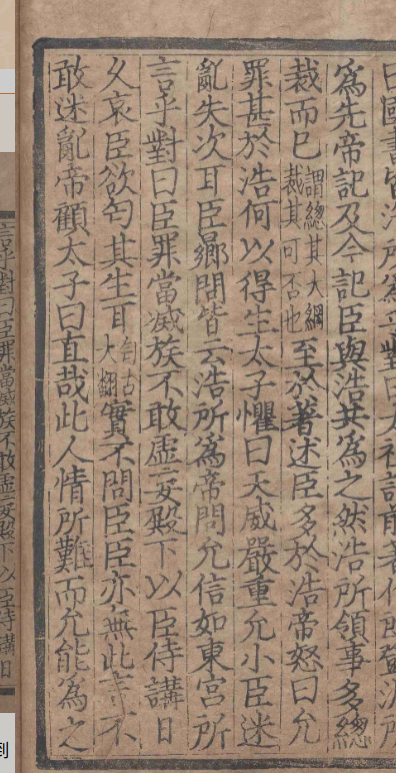 曰國書皆浩所為乎對曰太祖記前著作郎鄧淵所
爲先帝記及今記臣與浩共爲之然浩所領事多總
裁而已謂總其大綱裁其可否也至於著述臣多於浩帝怒曰允
罪甚於浩何以得生太子懼曰天威嚴重允小臣迷
亂失次耳臣鄉問皆云浩所爲帝問允信如東宮所
言乎對曰臣罪當滅族不敢虛妄殿下以臣侍講日
久哀臣欲匄其生耳匄古大翻實不問臣臣亦無此言不
敢迷亂帝顧太子曰直哉此人情所難而允能爲之
言乎對曰臣罪當滅族不敢虛妄殿下以臣侍講日
到